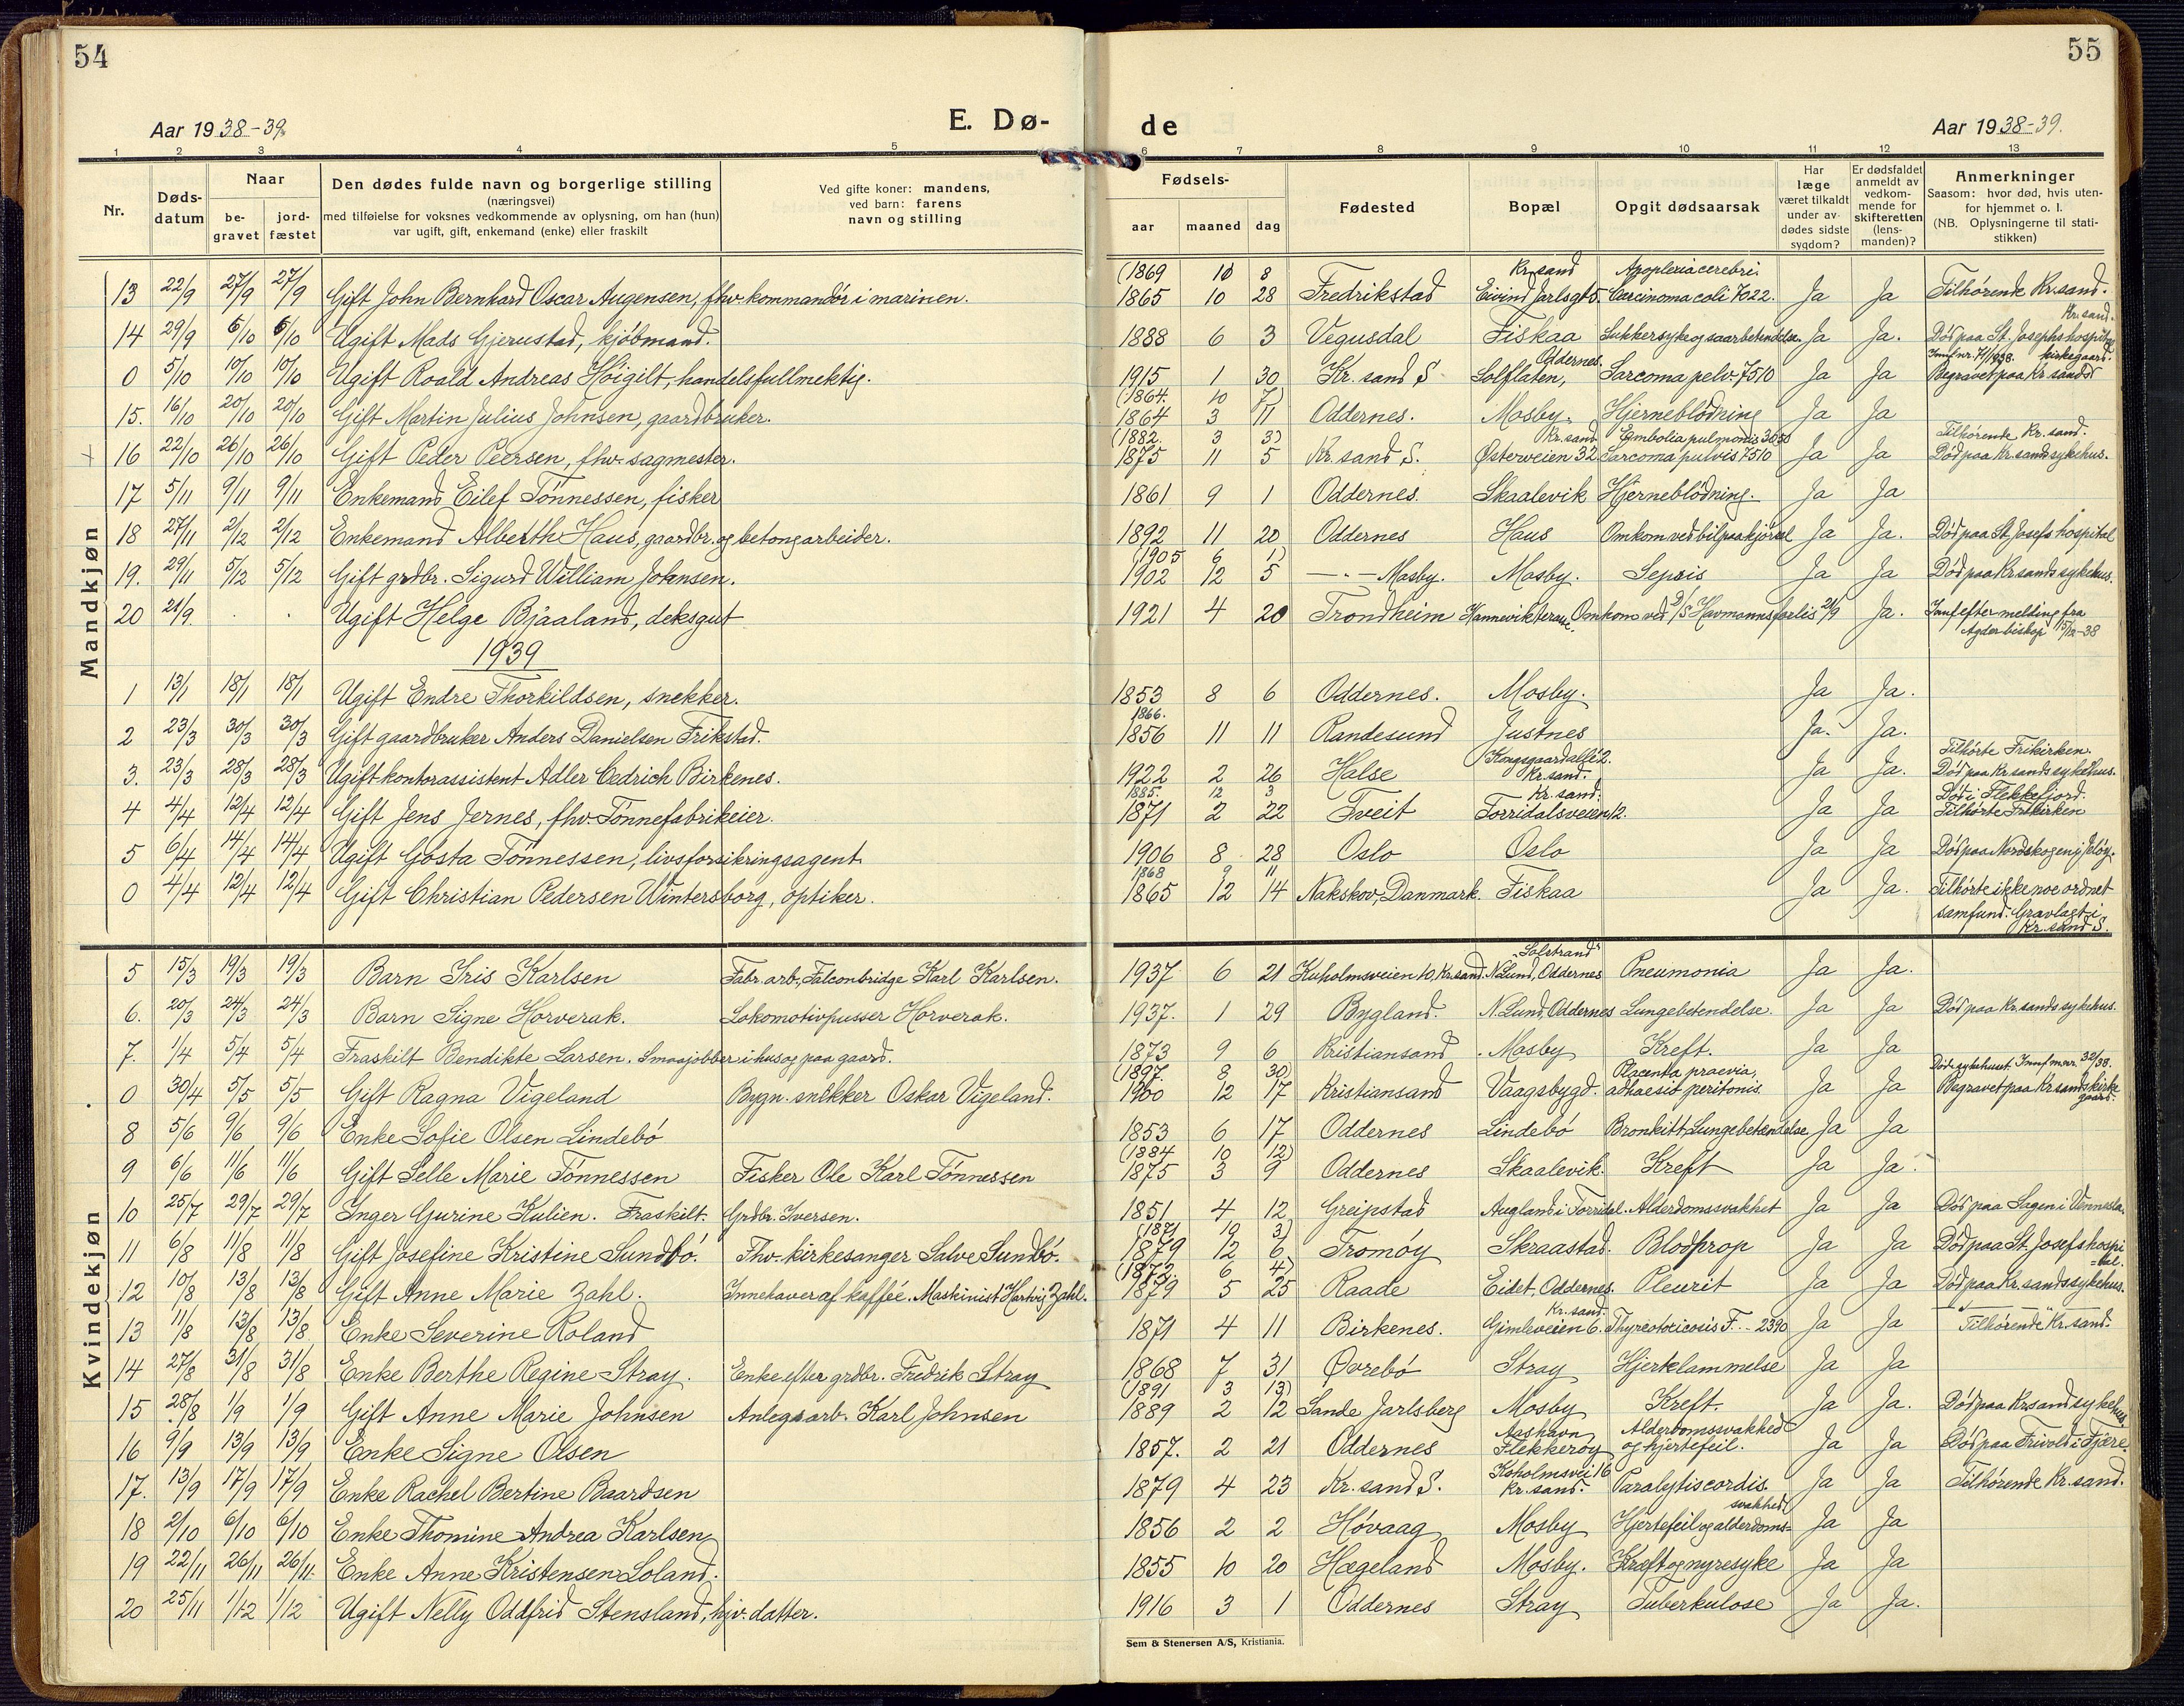 54
55
Aar 1938-39.
E. Dø-
de
Aar 1938-39.
1 2 3 4 5 6 7 8 9 10 11 12 13
Nr.
Døds-
datum
Naar
be-
gravet
jord-
fæstet
Den dødes fulde navn og borgerlige stilling
(næringsvei)
med tilføielse for voksnes vedkommende av oplysning, om han (hun)
var ugift, gift, enkemand (enke) eller fraskilt
Ved gifte koner: mandens,
ved barn: farens
navn og stilling
Fødsels-
aar maaned dag
Fødested
Bopæl
Opgit dødsaarsak
Har
læge
været tilkaldt
under av-
dødes sidste
sygdom?
Er dødsfaldet
anmeldt av
vedkom-
mende for
skifteretten
(lens-
manden)?
Anmerkninger
Saasom: hvor død, hvis uten-
for hjemmet o. l.
(NB. Oplysningerne til stati-
stikken)
Mandkjøn
(1869 10 8 Kr.sand Apoplexia cerebri.
13 22/9 27/9 27/9 Gift John Bernhard Oscar Augensen, fhv. kommandør i marinen. 1865 10 28 Fredrikstad Eivind Jarlsgt 5. Carcinoma coli 7022. Ja Ja Tilhørende Kr.sand.
Kr.sand.
14 29/9 6/10 6/10 Ugift Mads Gjerustad, kjøbmand. 1888 6 3 Vegusdal Fiskaa Sukkersyke og saarbetendelse. Ja Ja. Død paa St. Josephs hospital
Oddernes. Innf nr. 71/1938. kirkegaard.
0 5/10 10/10 10/10 Ugift Roald Andreas Høigilt, handelsfullmektig. 1915 1 30 Kr. sand S Solflaten, Sarcoma pelv. 7510 Ja Ja Begravet paa Kr sands
(1864. 10 7)
15. 16/10 20/10 20/10 Gift Martin Julius Johnsen, gaardbruker. 1864 3 11 Oddernes. Mosby. Hjerneblødning Ja Ja
(1882. 3 3) Kr.sand Embolia pulmonis 3050 Tilhørende Kr. sand.
16 22/10 26/10 26/10 Gift Peder Peersen, fhv. sagmester. 1875 11 5 Kr. sand S. Østerveien 32. Sarcoma pulvis 7510 Ja Ja Død paa Kr.sands sykehus.
17 5/11 9/11 9/11 Enkemand Eilef Tønnessen, fisker 1861 9 1 Oddernes. Skaalevik Hjerneblødning. Ja Ja
18 27/11 2/12 2/12 Enkemand Alberth Haus, gaardbr. og betongarbeider. 1892 11 20 Oddernes Haus Omkom ved bilpaakjørsel Ja Ja. Død paa St. Josefs hospital
(1905 6 1)
19. 29/11 5/12 5/12 Gift grdbr. Sigurd William Johnsen. 1902 12 5 — " — Mosby. Mosby. Sepsis Ja Ja Død paa Kr sands sykehus.
20 21/9 . . Ugift Helge Bjåaland, deksgut 1921 4 20 Trondheim Hannevikterasse. Omkom ved D/S Havmanns forlis 21/9 Ja. Innf efter melding fra
Agder biskop 15/12-38
1939
1 13/1 18/1 18/1 Ugift Endre Thorkildsen, snekker. 1853 8 6 Oddernes. Mosby. Ja Ja.
1866.
2 23/3 30/3 30/3 Gift gaardbruker Anders Danielsen Frikstad. 1856 11 11 Randesund Justnes Ja. Ja.
Kongsgaardallé 2. Kr.sand. Tilhørte Frikirken.
3. 23/3 28/3 28/3 Ugift kontorassistent Adler Cedrich Birkenes. 1922 2 26 Halse Ja Ja. Død paa Kr sands sykehus.
1885. 12 3 Kr.sand. Død i Flekkefjord.
4 4/4 12/4 12/4 Gift Jens Jernes, fhv. Tønnefabrikeier. 1871 2 22 Tveit Torridalsveien 12. Ja Ja Tilhørte Frikirken
5 6/4 14/4 14/4 Ugift Gøsta Tønnessen, livsforsikringsagent 1906 8 28 Oslo Oslo Ja Ja Død paa Nordskogen i Jeløy.
1868 9 11
0 4/4 12/4 12/4 Gift Christian Pedersen Wintersborg, optiker. 1865 12 14 Nakskov, Danmark. Fiskaa Ja Ja. Tilhørte ikke noe ordnet
samfund. Gravlagt i
Kr. sand S.
Kvindekjøn
"Solstrand"
5 15/3 19/3 19/3 Barn Iris Karlsen Fabr. arb., Falconbridge Karl Karlsen. 1937 6 21 Kuholmsveien 10, Kr.sand. N. Lund, Oddernes Pneumonia Ja Ja.
6. 20/3 24/3 24/3 Barn Signe Horverak. Lokomotivpusser Horverak. 1937. 1 29 Bygland. N. Lund, Oddernes Lungebetendelse. Ja Ja Død paa Kr.sands sykehus.
7. 1/4 5/4 5/4 Fraskilt Bendikte Larsen. Smaajobber i hus og paa gaard. 1873 9 6 Kristiansand Mosby Kreft. Ja Ja
(1897. 8 30) Placenta praevia, Død sykehuset Innf. nr. 32/38.
0 30/4 5/5 5/5 Gift Ragna Vigeland Bygn. snekker Oskar Vigeland. 1900 12 17 Kristiansand Vaagsbygd. adhaesio peritonis. Ja Ja Begravet paa Kr sands kirke
gaard.
8 5/6 9/6 9/6 Enke Sofie Olsen Lindebø 1853 6 17 Oddernes Lindebø Bronkitt, Lungebetændelse Ja Ja
(1884 10 12)
9 6/6 11/6 11/6 Gift Selle Marie Tønnessen Fisker Ole Karl Tønnessen 1875 3 9 Oddernes Skaalevik. Kreft Ja Ja.
10 25/7 29/7 29/7 Inger Gurine Kulien. Fraskilt. Grdbr. Iversen. 1851 4 12 Greipstad Augland i Torridal. Alderdomssvakhet Ja Ja Død paa Sagen i Vennesla.
(1871 10 3)
11 6/8 11/8 11/8 Gift Josefine Kristine Sundbø. Fhv. kirkesanger Salve Sundbø. 1879 12 6 Tromøy Skraastad. Blodprop Ja Ja Død paa St. Josefs hospi
=tal.
(1872. 6 4)
12 10/8 13/8 13/8 Gift Anne Marie Zahl. Innehaver af kaffée. Maskinist Hartvig Zahl. 1879 5 25 Raade Eidet, Oddernes. Pleurit Ja Ja Død paa Kr. sands sykehus.
Kr.sand.
13 11/8 13/8 13/8 Enke Severine Roland 1871 4 11 Birkenes. Gimleveien 6. Thyreotoxicosis F. - 2390 Ja Ja Tilhørende Kr.sand.
14 27/8 31/8 31/8 Enke Berthe Regine Stray. Enke efter grdbr. Fredrik Stray 1868 7 31 Øvrebø Stray Hjertelammelse Ja Ja
(1891 3 13)
15 28/8 1/9 1/9 Gift Anne Marie Johnsen Anlegsarb. Karl Johnsen 1889 2 12 Sande Jarlsberg Mosby Kreft. Ja Ja. Død paa Kr.sand sykehus
Aashavn Alderdomssvakhed
16 9/9 13/9 13/9 Enke Signe Olsen 1857. 2 21 Oddernes Flekkerøy og hjertefeil. Ja Ja Død paa Frivold i Fjære.
Kuholmsvei 16
17. 13/9 17/9 17/9 Enke Rachel Bertine Baardsen 1879 4 23 Kr. sand S. Kr. sand. Paralytis cordis. Ja Ja Tilhørende Kr. sand.
svakhed
18 2/10 6/10 6/10 Enke Thomine Andrea Karlsen 1856 2 2 Høvaag Mosby Hjertefeil og alderdoms- Ja Ja
19 22/11 26/11 26/11. Enke Anne Kristensen Loland. 1855 10 20 Hægeland Mosby. Kreft og nyresyke Ja Ja
20 25/11 1/12 1/12 Ugift Nelly Oddfrid Stensland, hjv. datter. 1916 3 1 Oddernes Stray Tuberkulose Ja Ja.
Sem & Stenersen A/S, Kristiania.